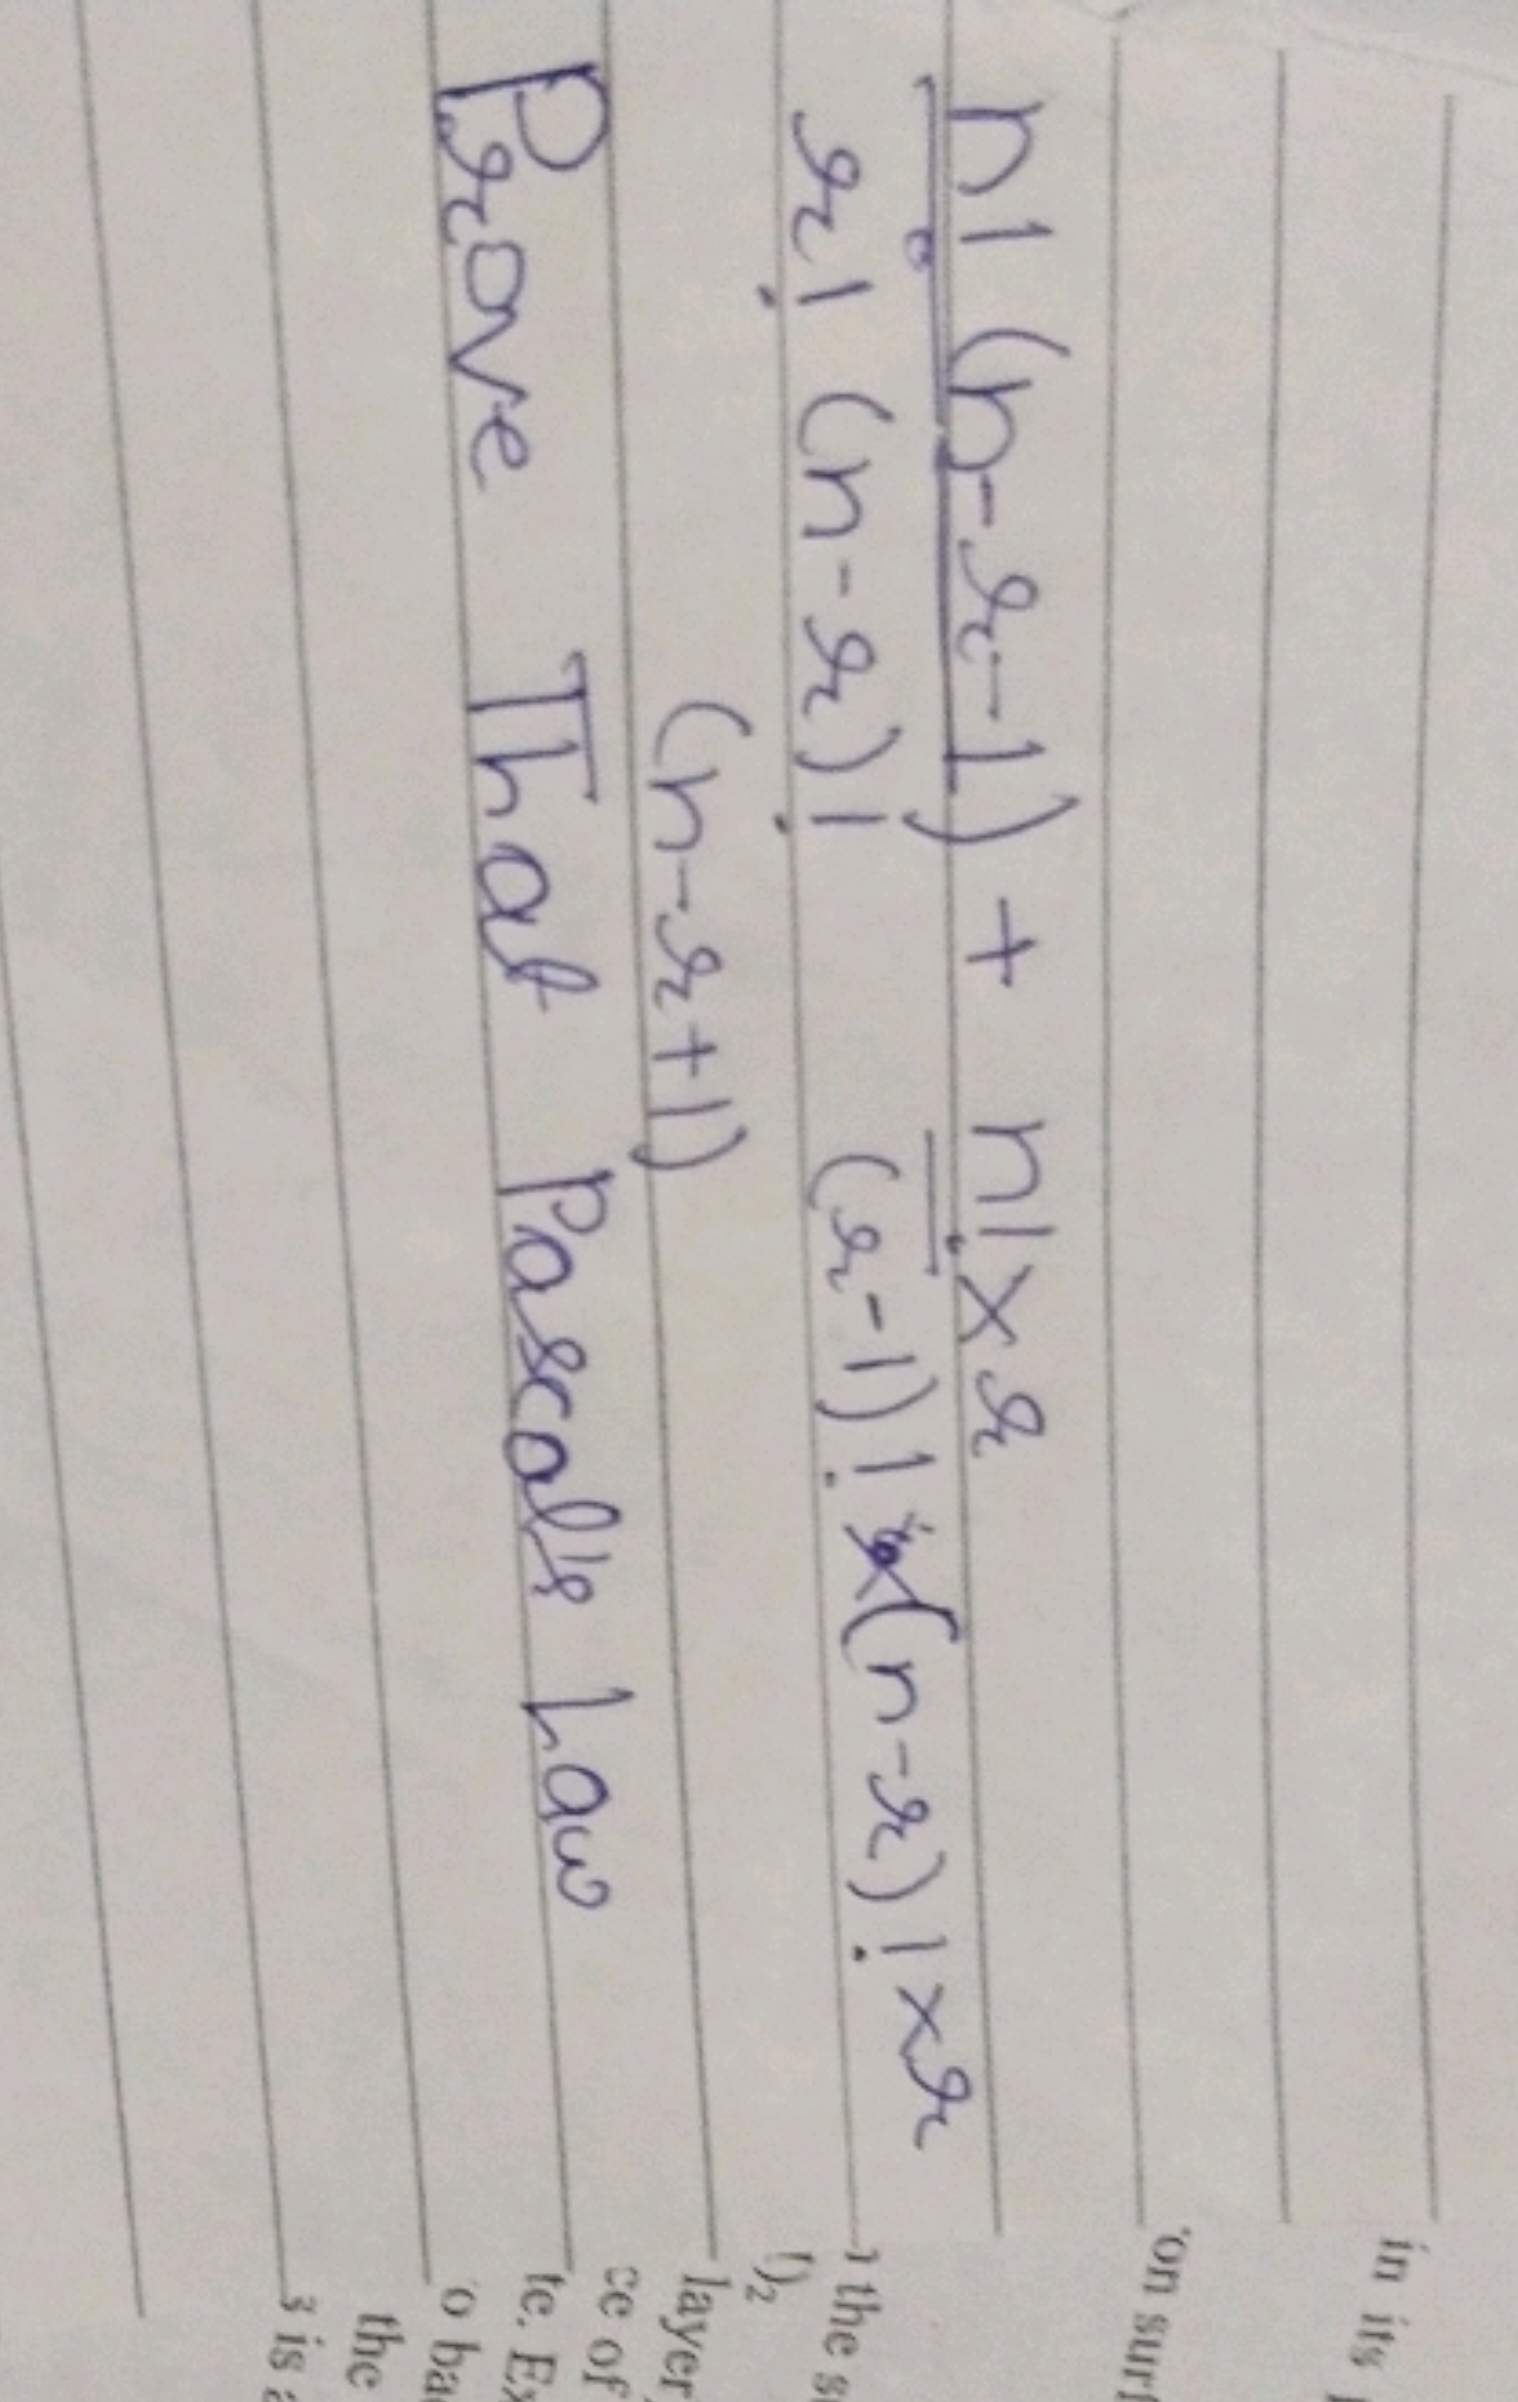 n! (n-r-1) + n!×r
r! (n-r)! (r-1)! ×(n-r)!×r
(n-r+1)
Prove That Pascal's Law
in its
on surf
the
)₂
layer
ce of
te. Ex
o ba
the
is